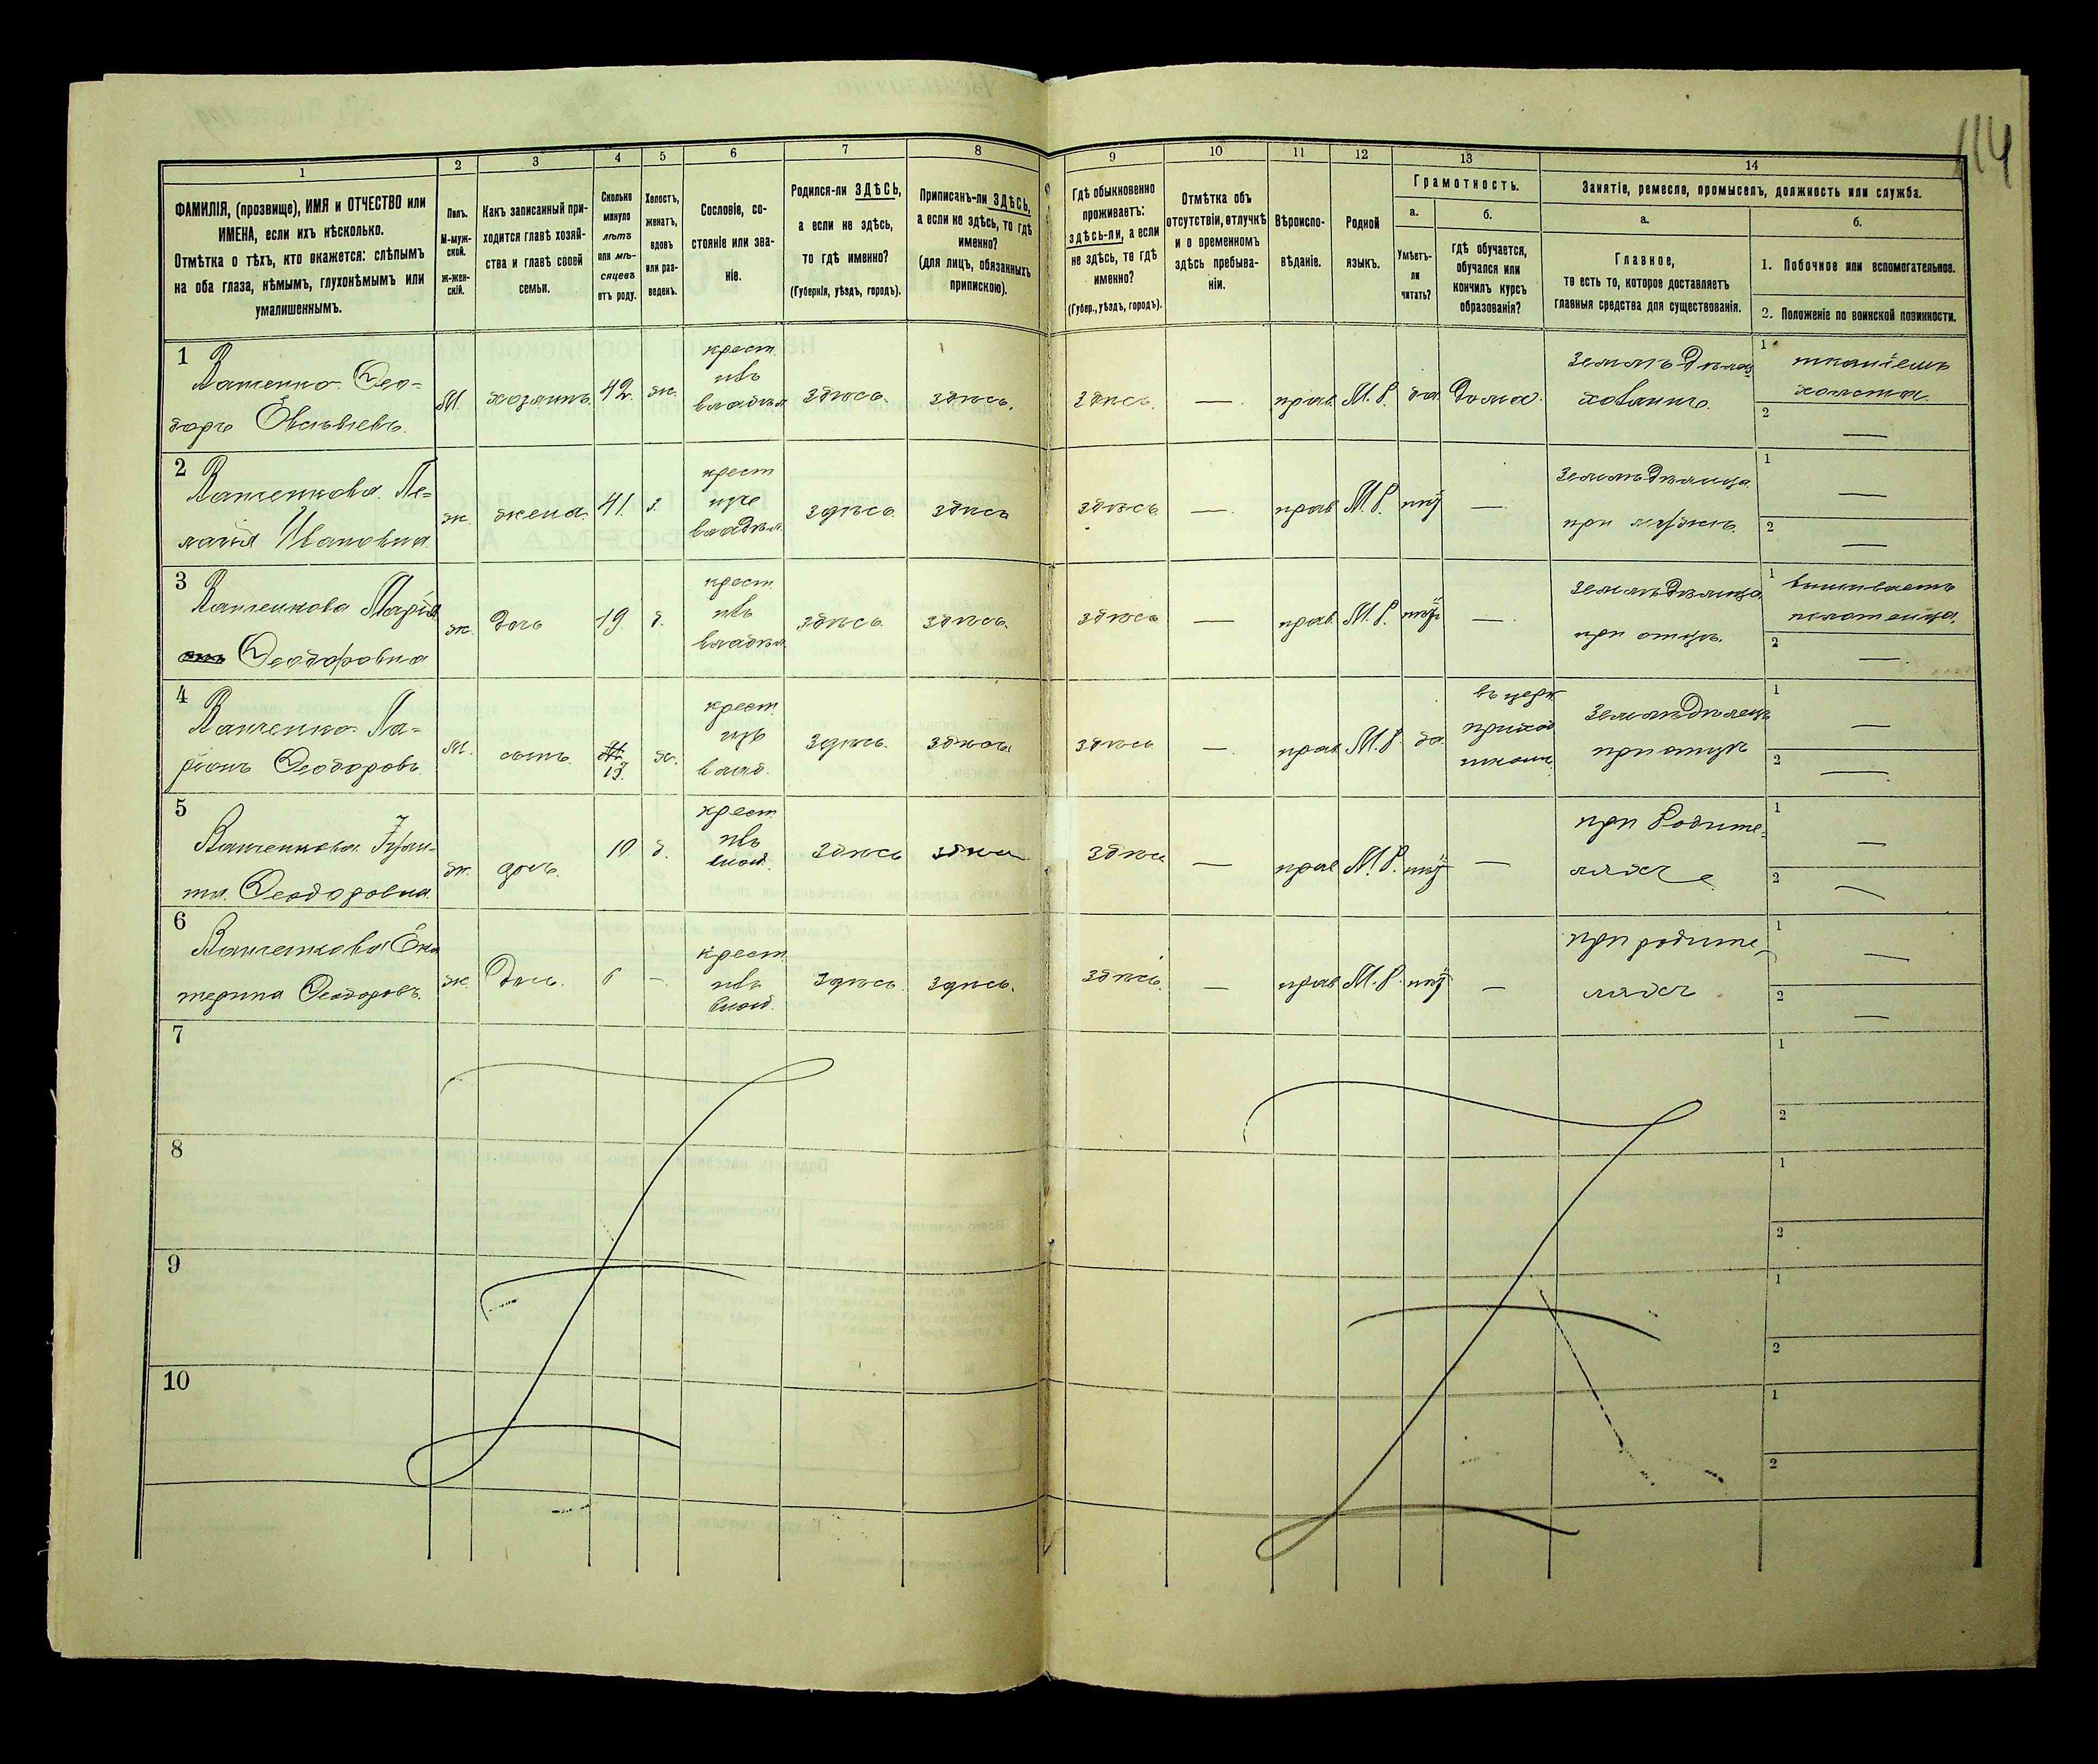 114
1
2
3
4
5
6
7
8
9
10
11
12
13
14
ФАМИЛІЯ, (прозвище), ИМЯ и ОТЧЕСТВО или
ИМЕНА, если ихъ нѣсколько.
Отмѣтка о тѣхъ, кто окажется: слѣпымъ
на оба глаза, нѣмымъ, глухонѣмымъ или
умалишеннымъ.
Полъ.
М-муж-
ской.
Ж-жен-
скій.
Какъ записанный при-
ходится главѣ хозяй-
ства и главѣ своей
семьи.
Сколько
минуло
лѣтъ
или мѣ-
сяцевъ
отъ роду.
Холостъ,
женатъ,
вдовъ
или раз-
веденъ.
Сословіе, со-
стояніе или зва-
ніе.
Родился-ли ЗДѢСЬ,
а если не здѣсь,
то гдѣ именно?
(Губернія, уѣздъ, городъ).
Приписанъ-ли ЗДѢСЬ,
а если не здѣсь, то гдѣ
именно?
(для лицъ, обязанныхъ
припискою).
Гдѣ обыкновенно
проживаетъ:
здѣсь-ли, а если
не здѣсь, то гдѣ
именно?
(Губер., уѣздъ, городъ).
Отмѣтка объ
отсутствіи, отлучкѣ
и о временномъ
здѣсь пребыва-
ніи.
Вѣроиспо-
вѣданіе.
Родной
языкъ.
Грамотность.
а.
Умѣетъ-
ли
читать?
б.
гдѣ обучается,
обучался или
кончилъ курсъ
образованія?
Занятіе, ремесло, промыселъ, должность или служба.
а.
Главное,
то есть то, которое доставляетъ
главныя средства для существованія.
б.
1. Побочное или вспомогательное.
2. Положеніе по воинской повинности.
1
Ѳео-
доръ
М.
хозяинъ
42.
ж.
крест.
здѣсь.
здѣсь.
здѣсь.
—
прав.
М.Р.
да
Дома.
1
холста.
2
—
2
Пе-
лагія Ивановна
ж.
жена.
41.
з.
крест
здѣсь.
здѣсь
здѣсь
—
прав
М.Р.
нѣт
—
Земледѣлица
при мужѣ.
1
—
2
—
3
Марія
Ѳеодоровна
ж.
Дочь
19
д.
крест.
здѣсь
здѣсь.
здѣсь
—
прав.
М.Р.
нѣт
—
Земледѣлица
при отцѣ.
1
вышиваетъ
полотенца.
2
—
4
Ла-
ріонъ Ѳеодоровъ
М.
сынъ
13.
х.
крест.
влад.
здѣсь.
здѣсь
здѣсь
—
прав
М.Р.
да
въ церк.
приход
школѣ.
Земледѣлецъ
при отцѣ
1
—
2
—
5
Ѳеодоровна
ж.
дочь.
10
д.
крест.
влад.
здѣсь
здѣсь
здѣсь
—
прав
М.Р.
нѣт
—
при Родите-
ляхъ
1
—
2
—
6
Ека
терина Ѳеодоровъ.
ж.
Дочь.
6
—
крест.
влад.
здѣсь.
здѣсь.
здѣсь.
—
прав
М.Р.
нѣт
—
при родите-
ляхъ
1
—
2
—
7
1
2
8
1
2
9
1
2
10
1
2